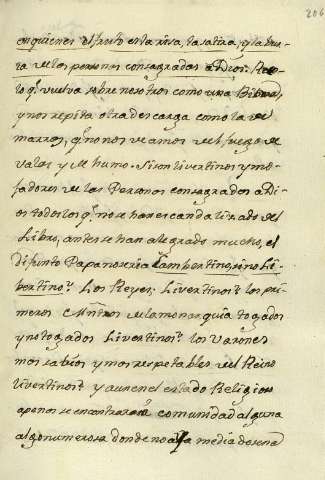 206
en quienes el fruto esta risa, la satira, y la bur-
la de las personas consagradas a Dios. Rez-
lo qe vuelva sobre nosotros como una
y nos repita otra descarga como la de
marras, qe no nos veamos de el fuego de
Vates y de humo. Si son livertinos y mo-
fadores de las Personas consagradas a Di-
os todos los qe no se han escandalizado del
Libro, antes se han alegrado mucho, el
difunto Papa no seria Lambertino, sino Li-
bertino. Los Reyes, Livertinos: los pri-
meros Mntros de la monarquia togados
y no togados Livertinos: los Varones
mas sabios y mas respetables del Reino
Livertinos: y aun en el estado Religioso
apenas se encontrará comunidad alguna
algo numerosa donde no aya media docena